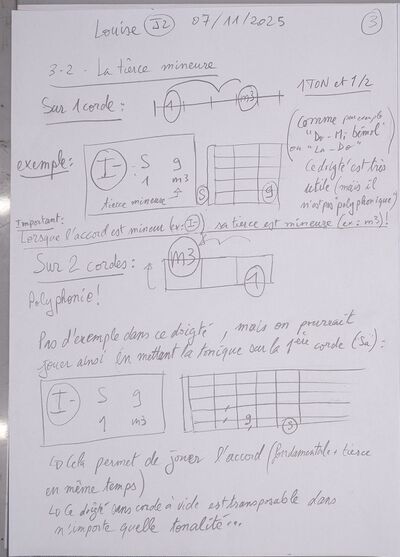 Louise J2 07/11/2025 3
3-2- La tierce mineure
Sur 1 corde : 1 m3 1 TON et 1/2
(Comme par exemple
"Do - Mi bémol"
ou "La - Do")
exemple : I- : S g
1 m3
tierce mineure
S g
Ce doigté est très
utile (mais il
n'est pas "polyphonique")
Important :
Lorsque l'accord est mineur (ex : I-) sa tierce est mineure (ex : m3) !
Sur 2 cordes : m3 1
Polyphonie !
Pas d'exemple dans ce doigté, mais on pourrait
jouer ainsi en mettant la tonique sur la 1ère corde (Sa) :
I- S g
1 m3
g S
↳ Cela permet de jouer l'accord (fondamentale + tierce
en même temps)
↳ Ce doigté sans corde à vide est transposable dans
n'importe quelle tonalité...